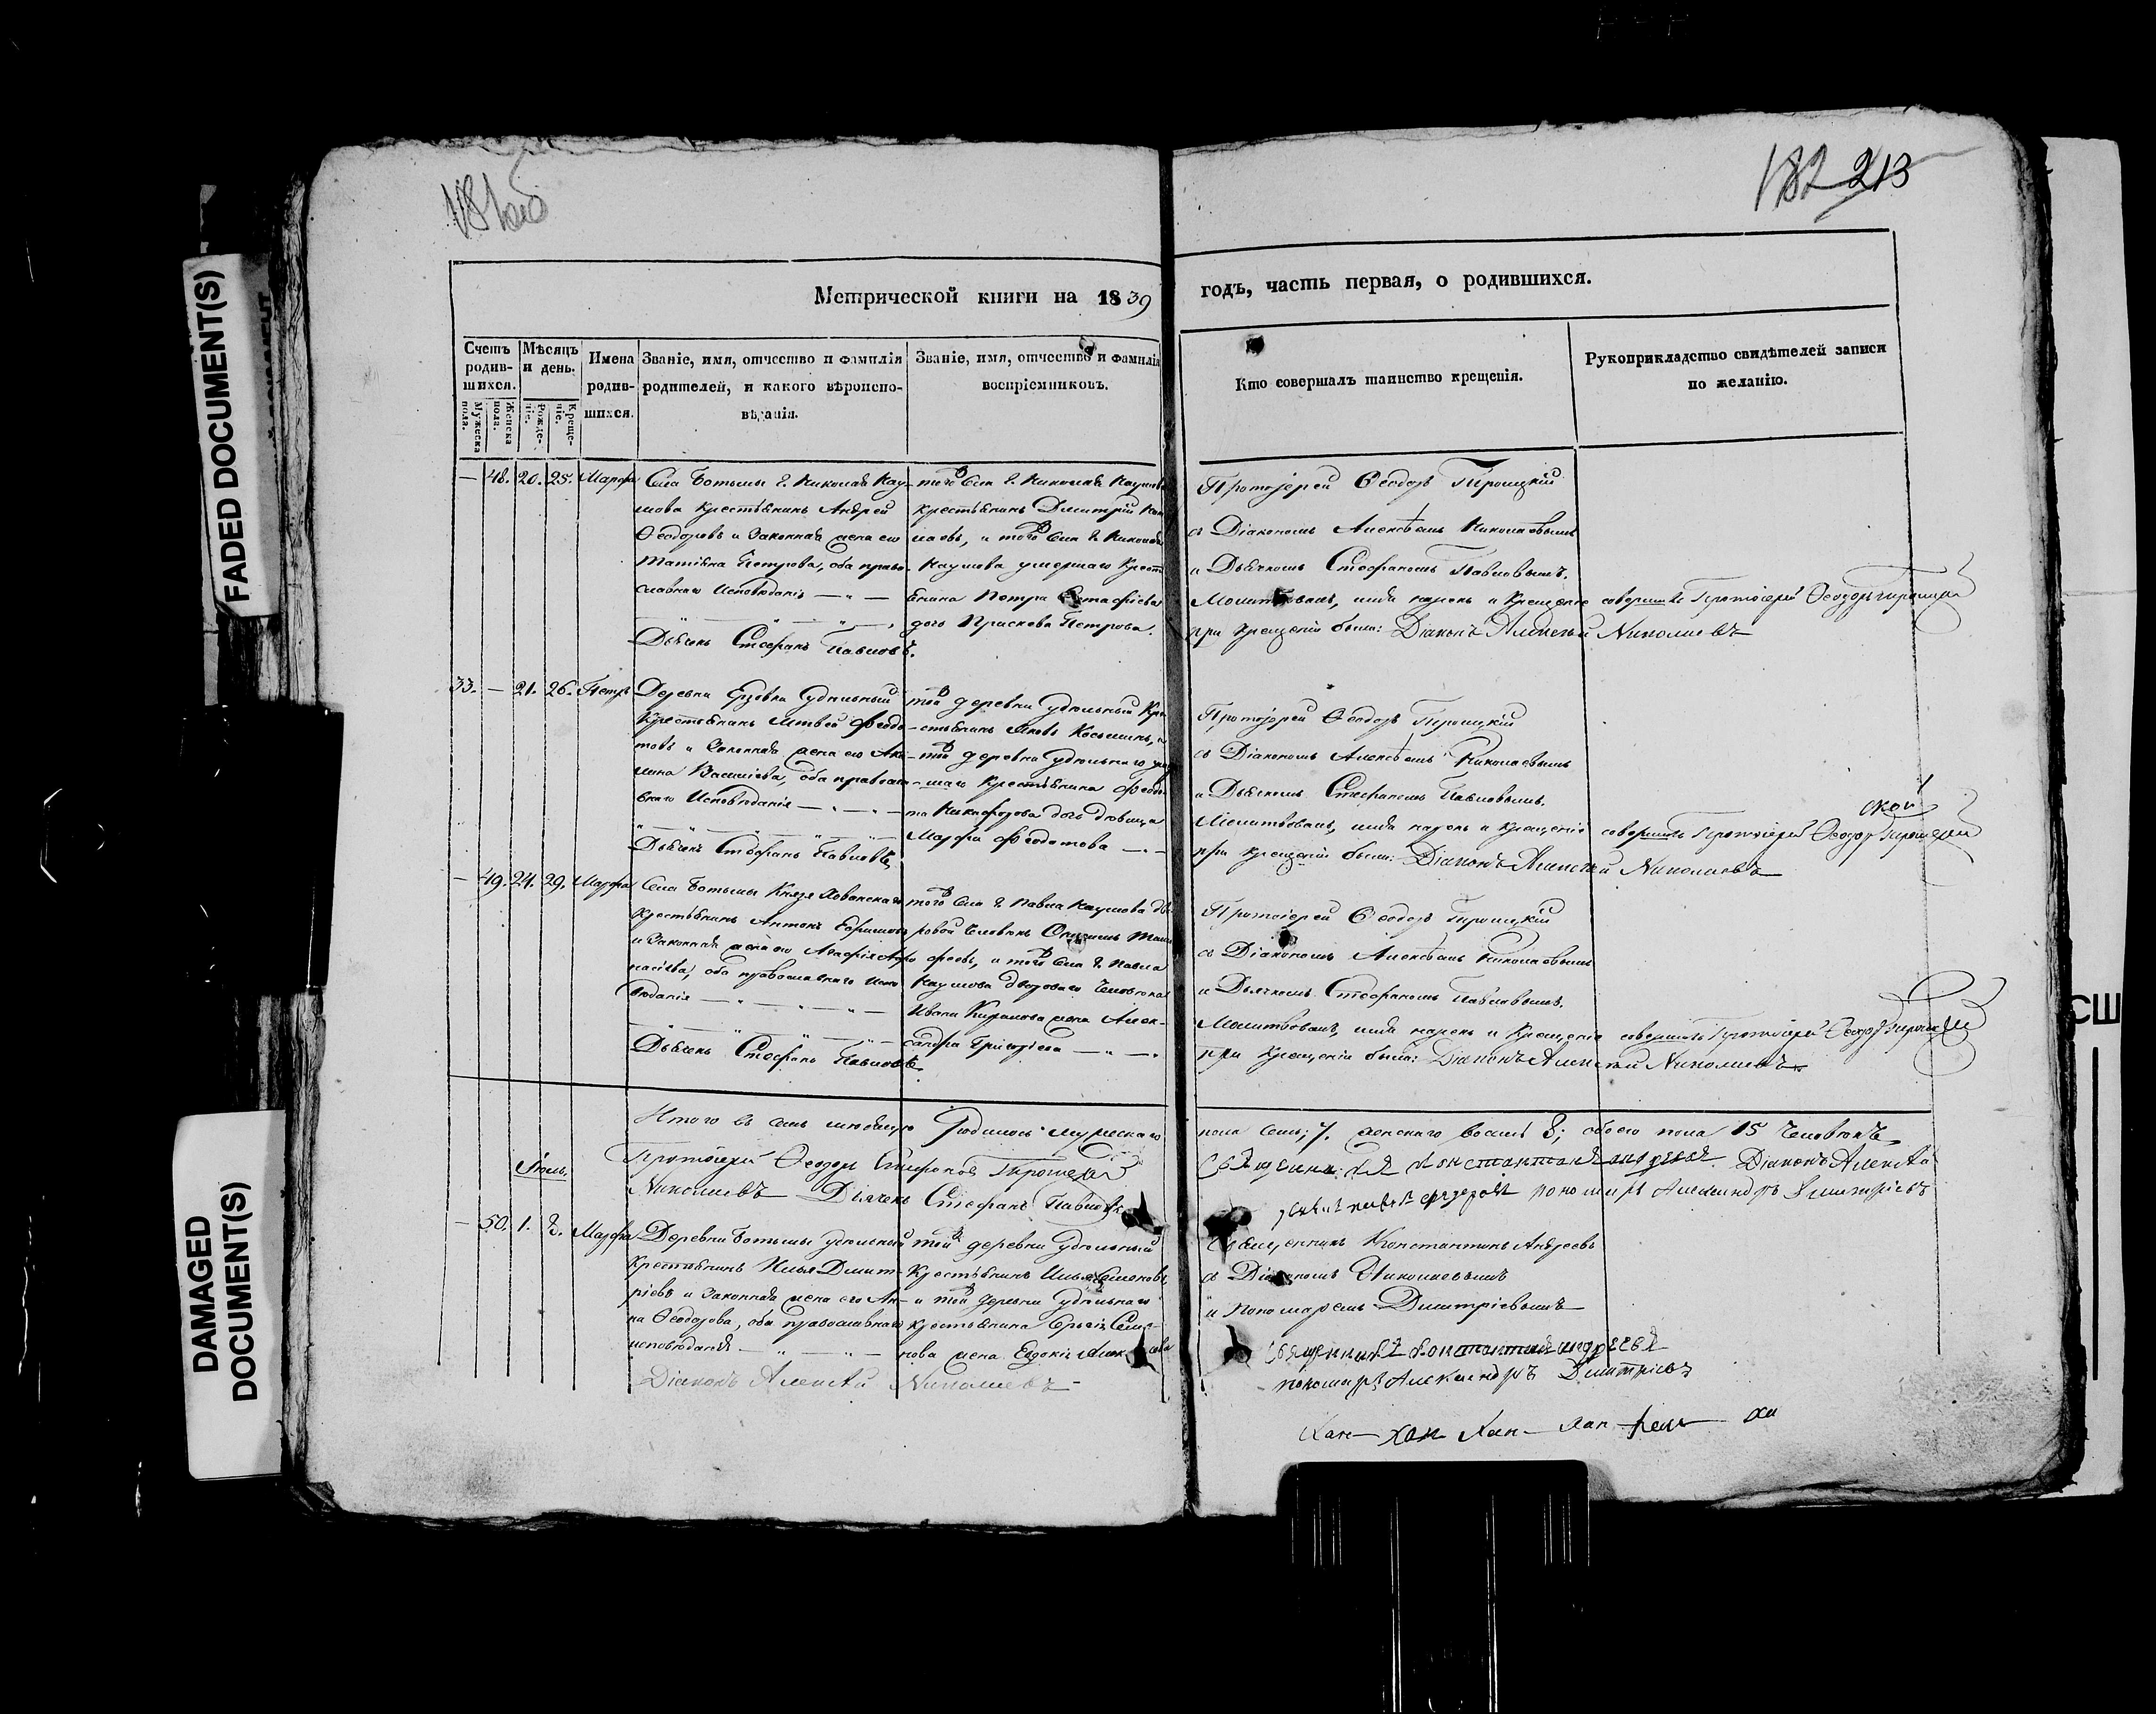 FADED DOCUMENT(S)
DAMAGED DOCUMENT(S)
181об
182 213
Метрической книги на 1839 годъ, часть первая, о родившихся.
Счетъ родившихся.
Мужеска пола.
Женска пола.
Мѣсяцъ и день.
Рожденіе.
Крещеніе.
Имена родившихся.
Званіе, имя, отчество и фамилія родителей, и какого вѣроисповѣданія.
Званіе, имя, отчество и фамилія воспріемниковъ.
Кто совершалъ таинство крещенія.
Рукоприкладство свидѣтелей записи по желанію.
— 48. 20. 25. Марфа
Села Ботьмы Г. Николая Нау-
мова крестьянинъ Андрей
Ѳеодоровъ и законная жена его
Татіяна Петрова, оба право-
славнаго исповѣданія
Дьячекъ Стефанъ Павловъ.
того села Г. Николая Наумова
крестьянинъ Димитрій
и того села Г. Николая
Наумова умершаго крест
янина Петра
дочь Прасковія Петрова.
Протоіерей Ѳеодоръ Троицкій
съ Діакономъ Алексѣемъ Николаевымъ
и Дьячкомъ Стефаномъ Павловымъ.
Молитвовалъ, имя нарекъ и крещеніе совершилъ Протоіерей Ѳеодоръ Троицкій
при крещеніи были: Діаконъ Алексѣй Николаевъ
33. — 21. 26. Петръ
Деревни Ерзовки удѣльный
крестьянинъ Матвей Ѳедо-
товъ и законная жена его Аку-
лина Васильева, оба правосла-
внаго исповѣданія
Дьячекъ Стефанъ Павловъ.
той деревни удѣльный кре-
стьянинъ Яковъ Косьминъ, и
той деревни удѣльнаго умер-
шаго крестьянина Ѳедо-
та Никифорова дочь дѣвица
Марфа Ѳедотова
Протоіерей Ѳеодоръ Троицкій
съ Діакономъ Алексѣемъ Николаевымъ
и Дьячкомъ Стефаномъ Павловымъ.
Молитвовалъ, имя нарекъ и крещеніе совершилъ Протоіерей Ѳеодоръ Троицкій
при крещеніи были: Діаконъ Алексѣй Николаевъ
— 49. 24. 29. Марфа
Села Ботьмы Князя Хованскаго
крестьянинъ Антонъ Ефимовъ
и законная жена его Агафія Афа-
насьева, оба православнаго испо-
вѣданія
Дьячекъ Стефанъ Павловъ.
того села Г. Павла Наумова дво-
ровой человѣкъ Онисимъ
и того села Г. Павла
Наумова двороваго человѣка
Ивана Кирилова жена Алек-
сандра Григорьева
Протоіерей Ѳеодоръ Троицкій
съ Діакономъ Алексѣемъ Николаевымъ
и Дьячкомъ Стефаномъ Павловымъ.
Молитвовалъ, имя нарекъ и крещеніе совершилъ Протоіерей Ѳеодоръ Троицкій
при крещеніи были: Діаконъ Алексѣй Николаевъ
Итого въ семъ мѣсяцѣ родилось мужескаго пола семь; 7. женскаго восемь 8; обоего пола 15 человѣкъ
Протоіерей Ѳеодоръ Троицкій Священникъ Константинъ Андреевъ Діаконъ Алексѣй
Николаевъ Дьячекъ Стефанъ Павловъ пономарь Александръ Димитріевъ
Іюль,
— 50. 1. 2. Марфа
Деревни Ботьмы удѣльный
крестьянинъ Илья Дмит-
ріевъ и законная жена его Ан-
на Ѳеодорова, оба православнаго
исповѣданія
Діаконъ Алексѣй Николаевъ
той деревни удѣльный
крестьянинъ Илья Семеновъ,
и той деревни удѣльнаго
крестьянина Сергія Семе-
нова жена Евдокія
Священникъ Константинъ Андреевъ
съ Діакономъ Николаевымъ
и Пономаремъ Димитріевымъ
Священникъ Константинъ Андреевъ
пономарь Александръ Димитріевъ
СШ